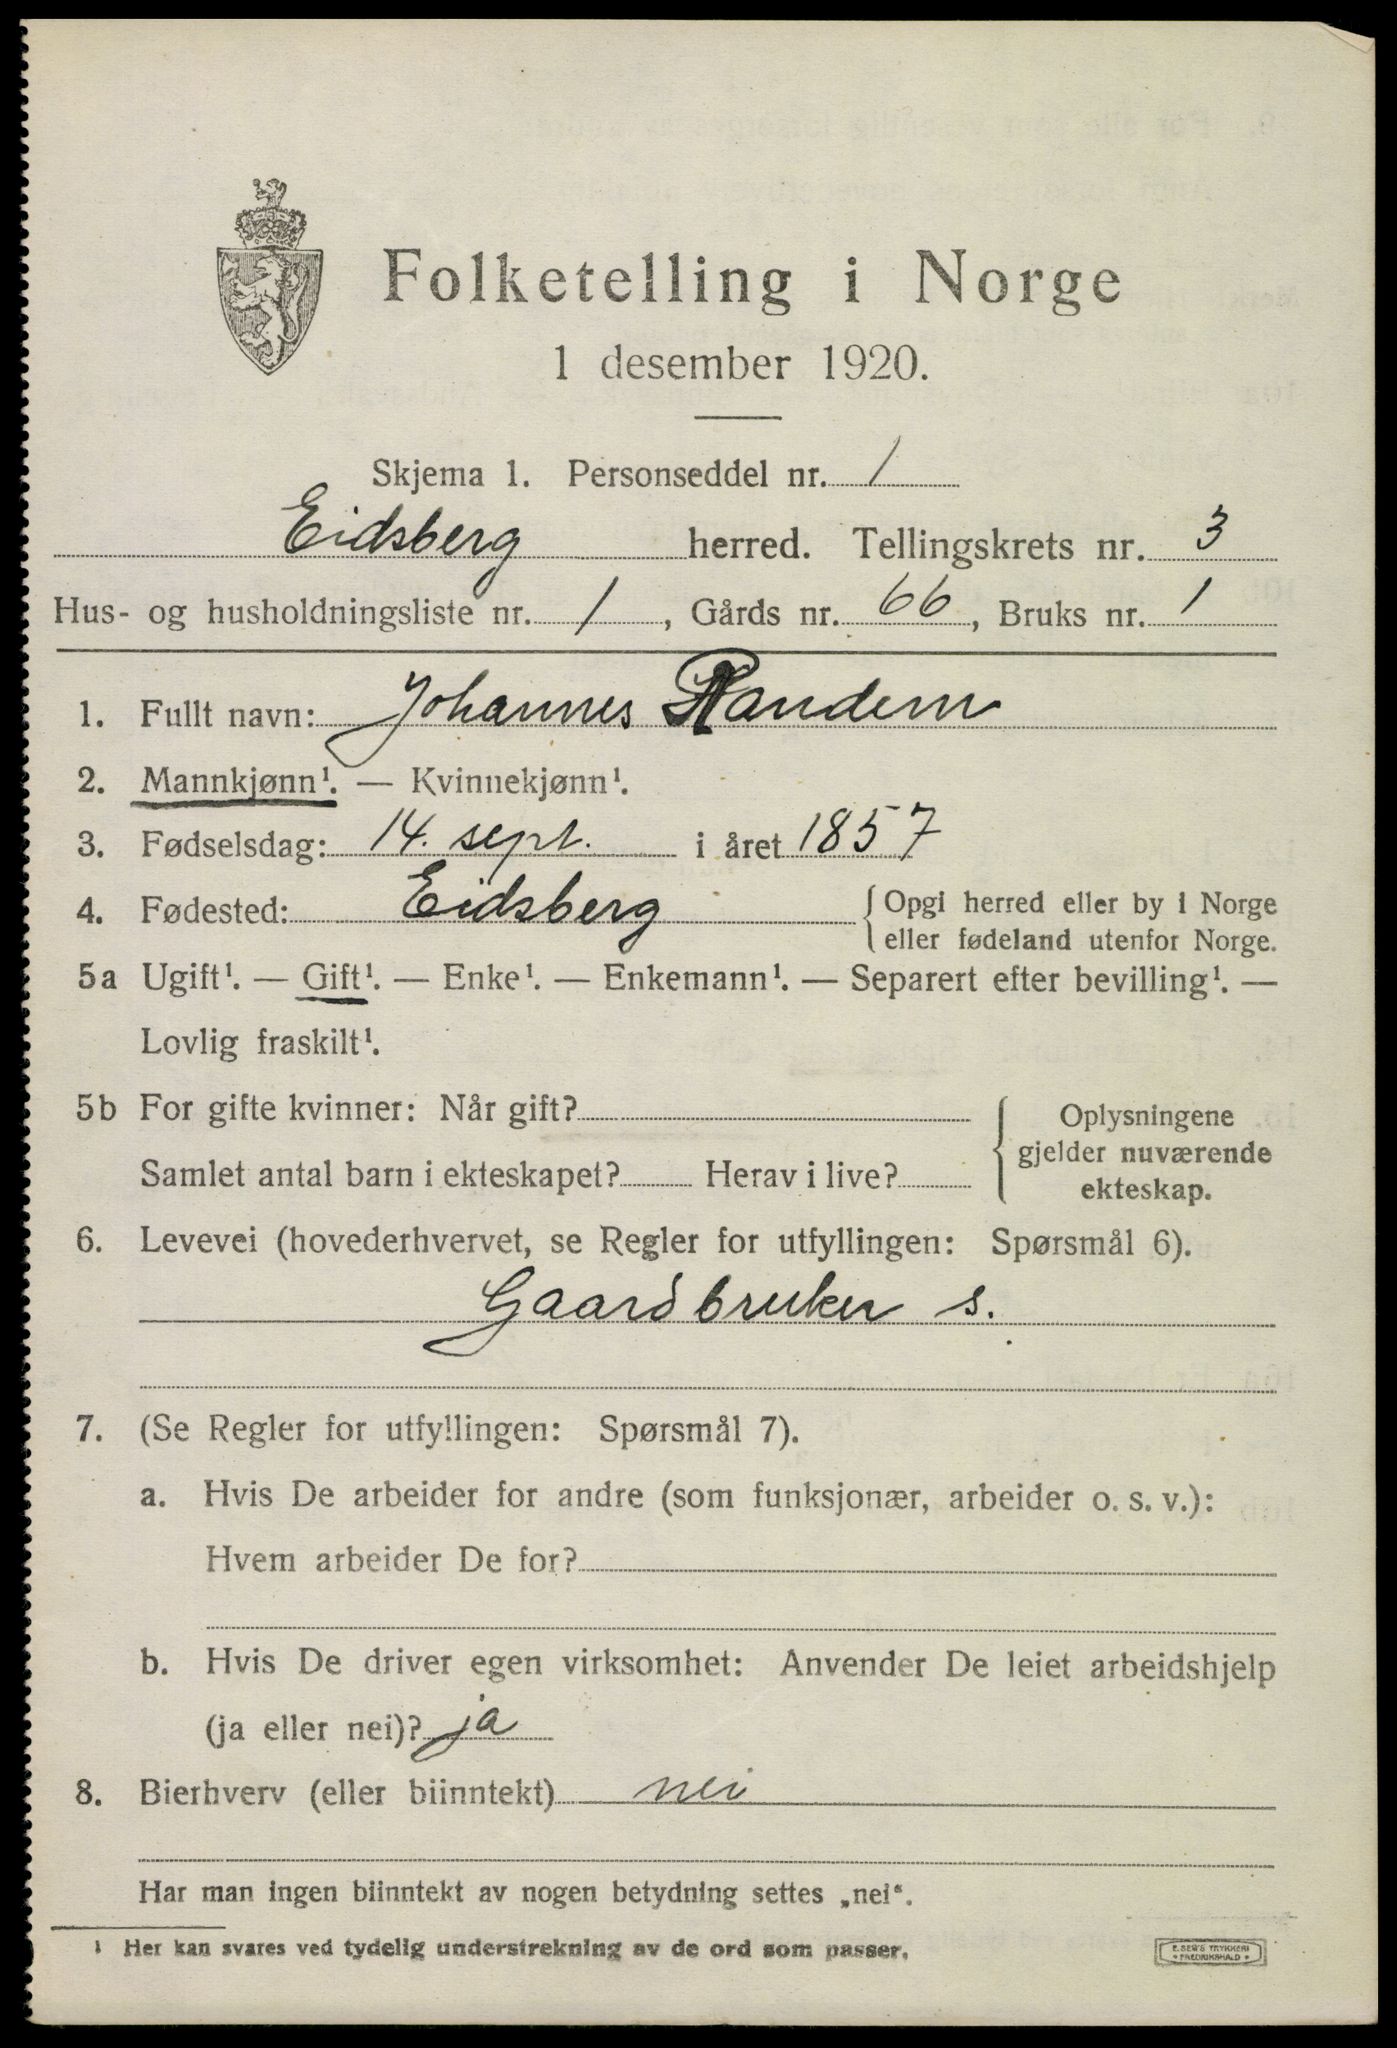 Folketelling i Norge
1 desember 1920.
Skjema 1. Personseddel nr. 1
Eidsberg herred. Tellingskrets nr. 3
Hus- og husholdningsliste nr. 1, Gårds nr. 66, Bruks nr. 1
1. Fullt navn: Johannes Randem
2. Mannkjønn¹. — Kvinnekjønn¹.
3. Fødselsdag: 14. sept. i året 1857
4. Fødested: Eidsberg
Opgi herred eller by i Norge
eller fødeland utenfor Norge.
5a Ugift¹. — Gift¹. — Enke¹. — Enkemann¹. — Separert efter bevilling¹. —
Lovlig fraskilt¹.
5b For gifte kvinner: Når gift?
Samlet antal barn i ekteskapet? Herav i live?
Oplysningene
gjelder nuværende
ekteskap.
6. Levevei (hovederhvervet, se Regler for utfyllingen: Spørsmål 6).
Gaardbruker s.
7. (Se Regler for utfyllingen: Spørsmål 7).
a. Hvis De arbeider for andre (som funksjonær, arbeider o. s. v.):
Hvem arbeider De for?
b. Hvis De driver egen virksomhet: Anvender De leiet arbeidshjelp
(ja eller nei)? ja
8. Bierhverv (eller biinntekt) nei
Har man ingen biinntekt av nogen betydning settes „nei“.
¹ Her kan svares ved tydelig understrekning av de ord som passer.
E. SEM'S TRYKKERI
FREDRIKSHALD